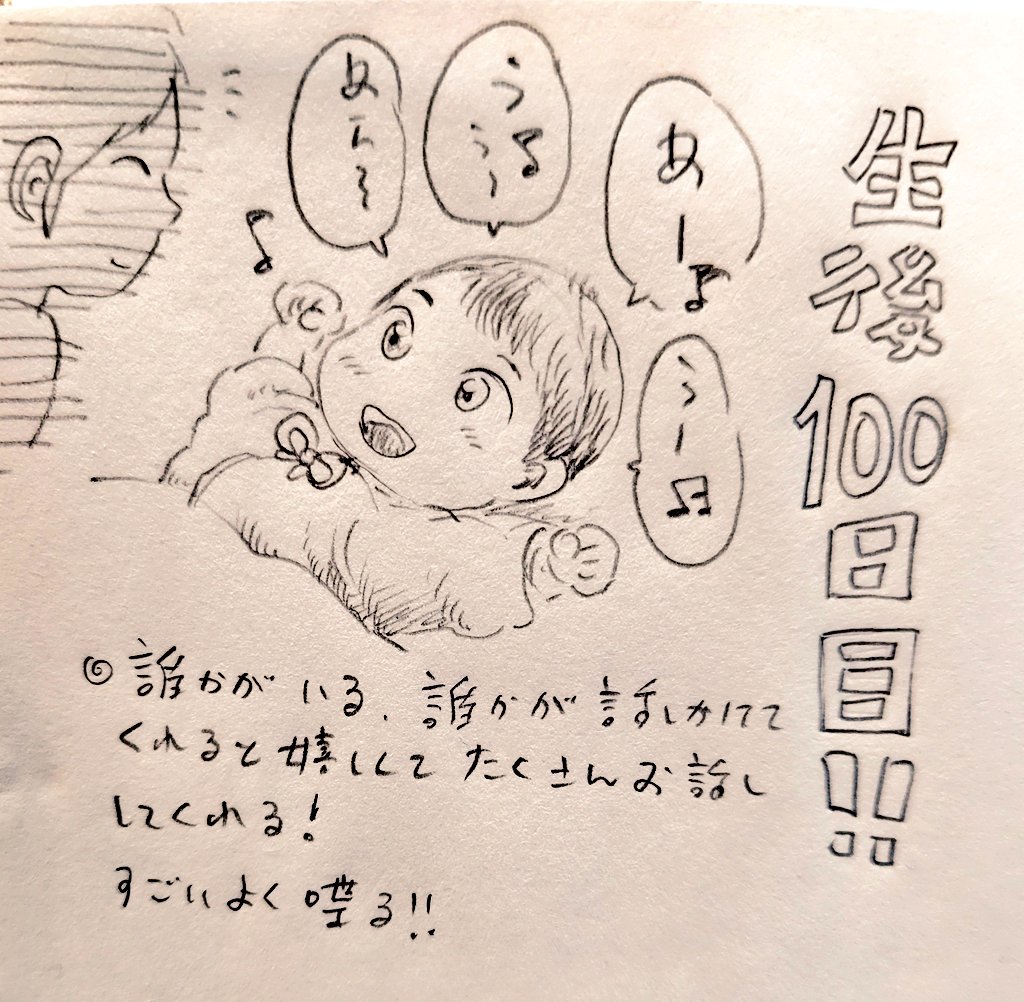 生後100日目!!
あー♪
うぅ〜♪
あえ〜
うー♫
◎誰かがいる、誰かが話しかけて
くれると嬉しくてたくさんお話し
してくれる!
すごいよく喋る!!